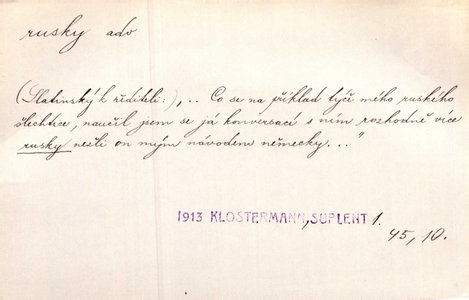 rusky adv
(Slatinský k řediteli:) „.. Co se na příklad týče mého ruského
šlechtice, naučil jsem se já konversací s ním rozhodně více
rusky nežli on mým návodem německy..."
1913 KLOSTERMANN, SUPLENT 1.
45, 10.